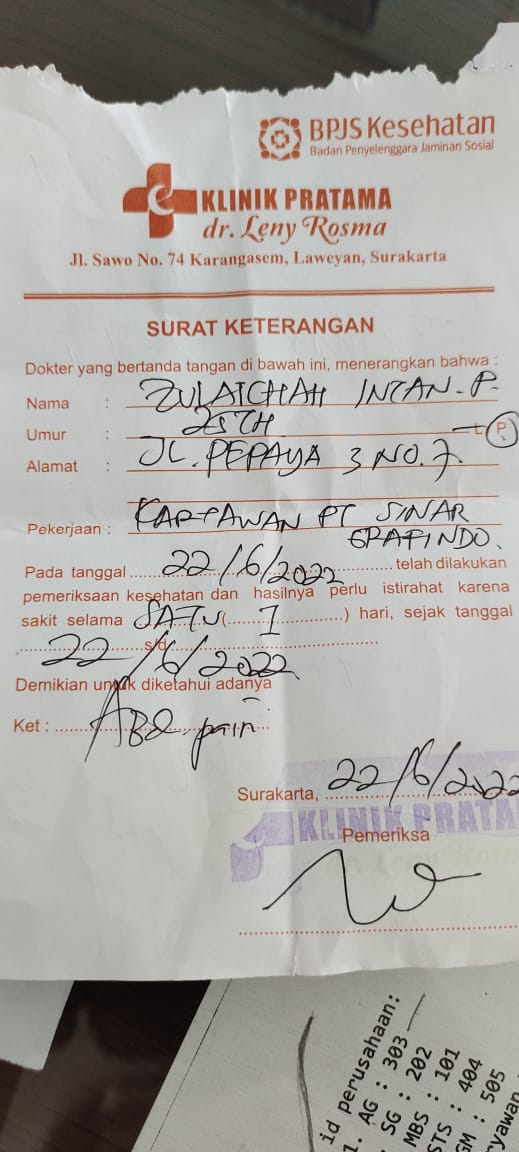 BPJS Kesehatan
Badan Penyelenggara Jaminan Sosial
KLINIK PRATAMA
dr. Leny Rosma
Jl. Sawo No. 74 Karangasem, Laweyan, Surakarta
SURAT KETERANGAN
Dokter yang bertanda tangan di bawah ini, menerangkan bahwa :
Nama : ZULAICHAH INTAN.P.
Umur : 25TH L P
Alamat : JL. PEPAYA 3 NO.7.
Pekerjaan : KARYAWAN PT SINAR
GRAFINDO.
Pada tanggal 22/6/2022 telah dilakukan
pemeriksaan kesehatan dan hasilnya perlu istirahat karena
sakit selama SATU ( 1 ) hari, sejak tanggal
22/6/2022 s/d
Demikian untuk diketahui adanya
Ket : ABD pain
Surakarta, 22/6/2022
KLINIK PRATA
Pemeriksa
dr. Leny
id perusahaan:
1. AG : 303
SG : 202
MBS : 101
STS : 404
GM : 505
ryawan